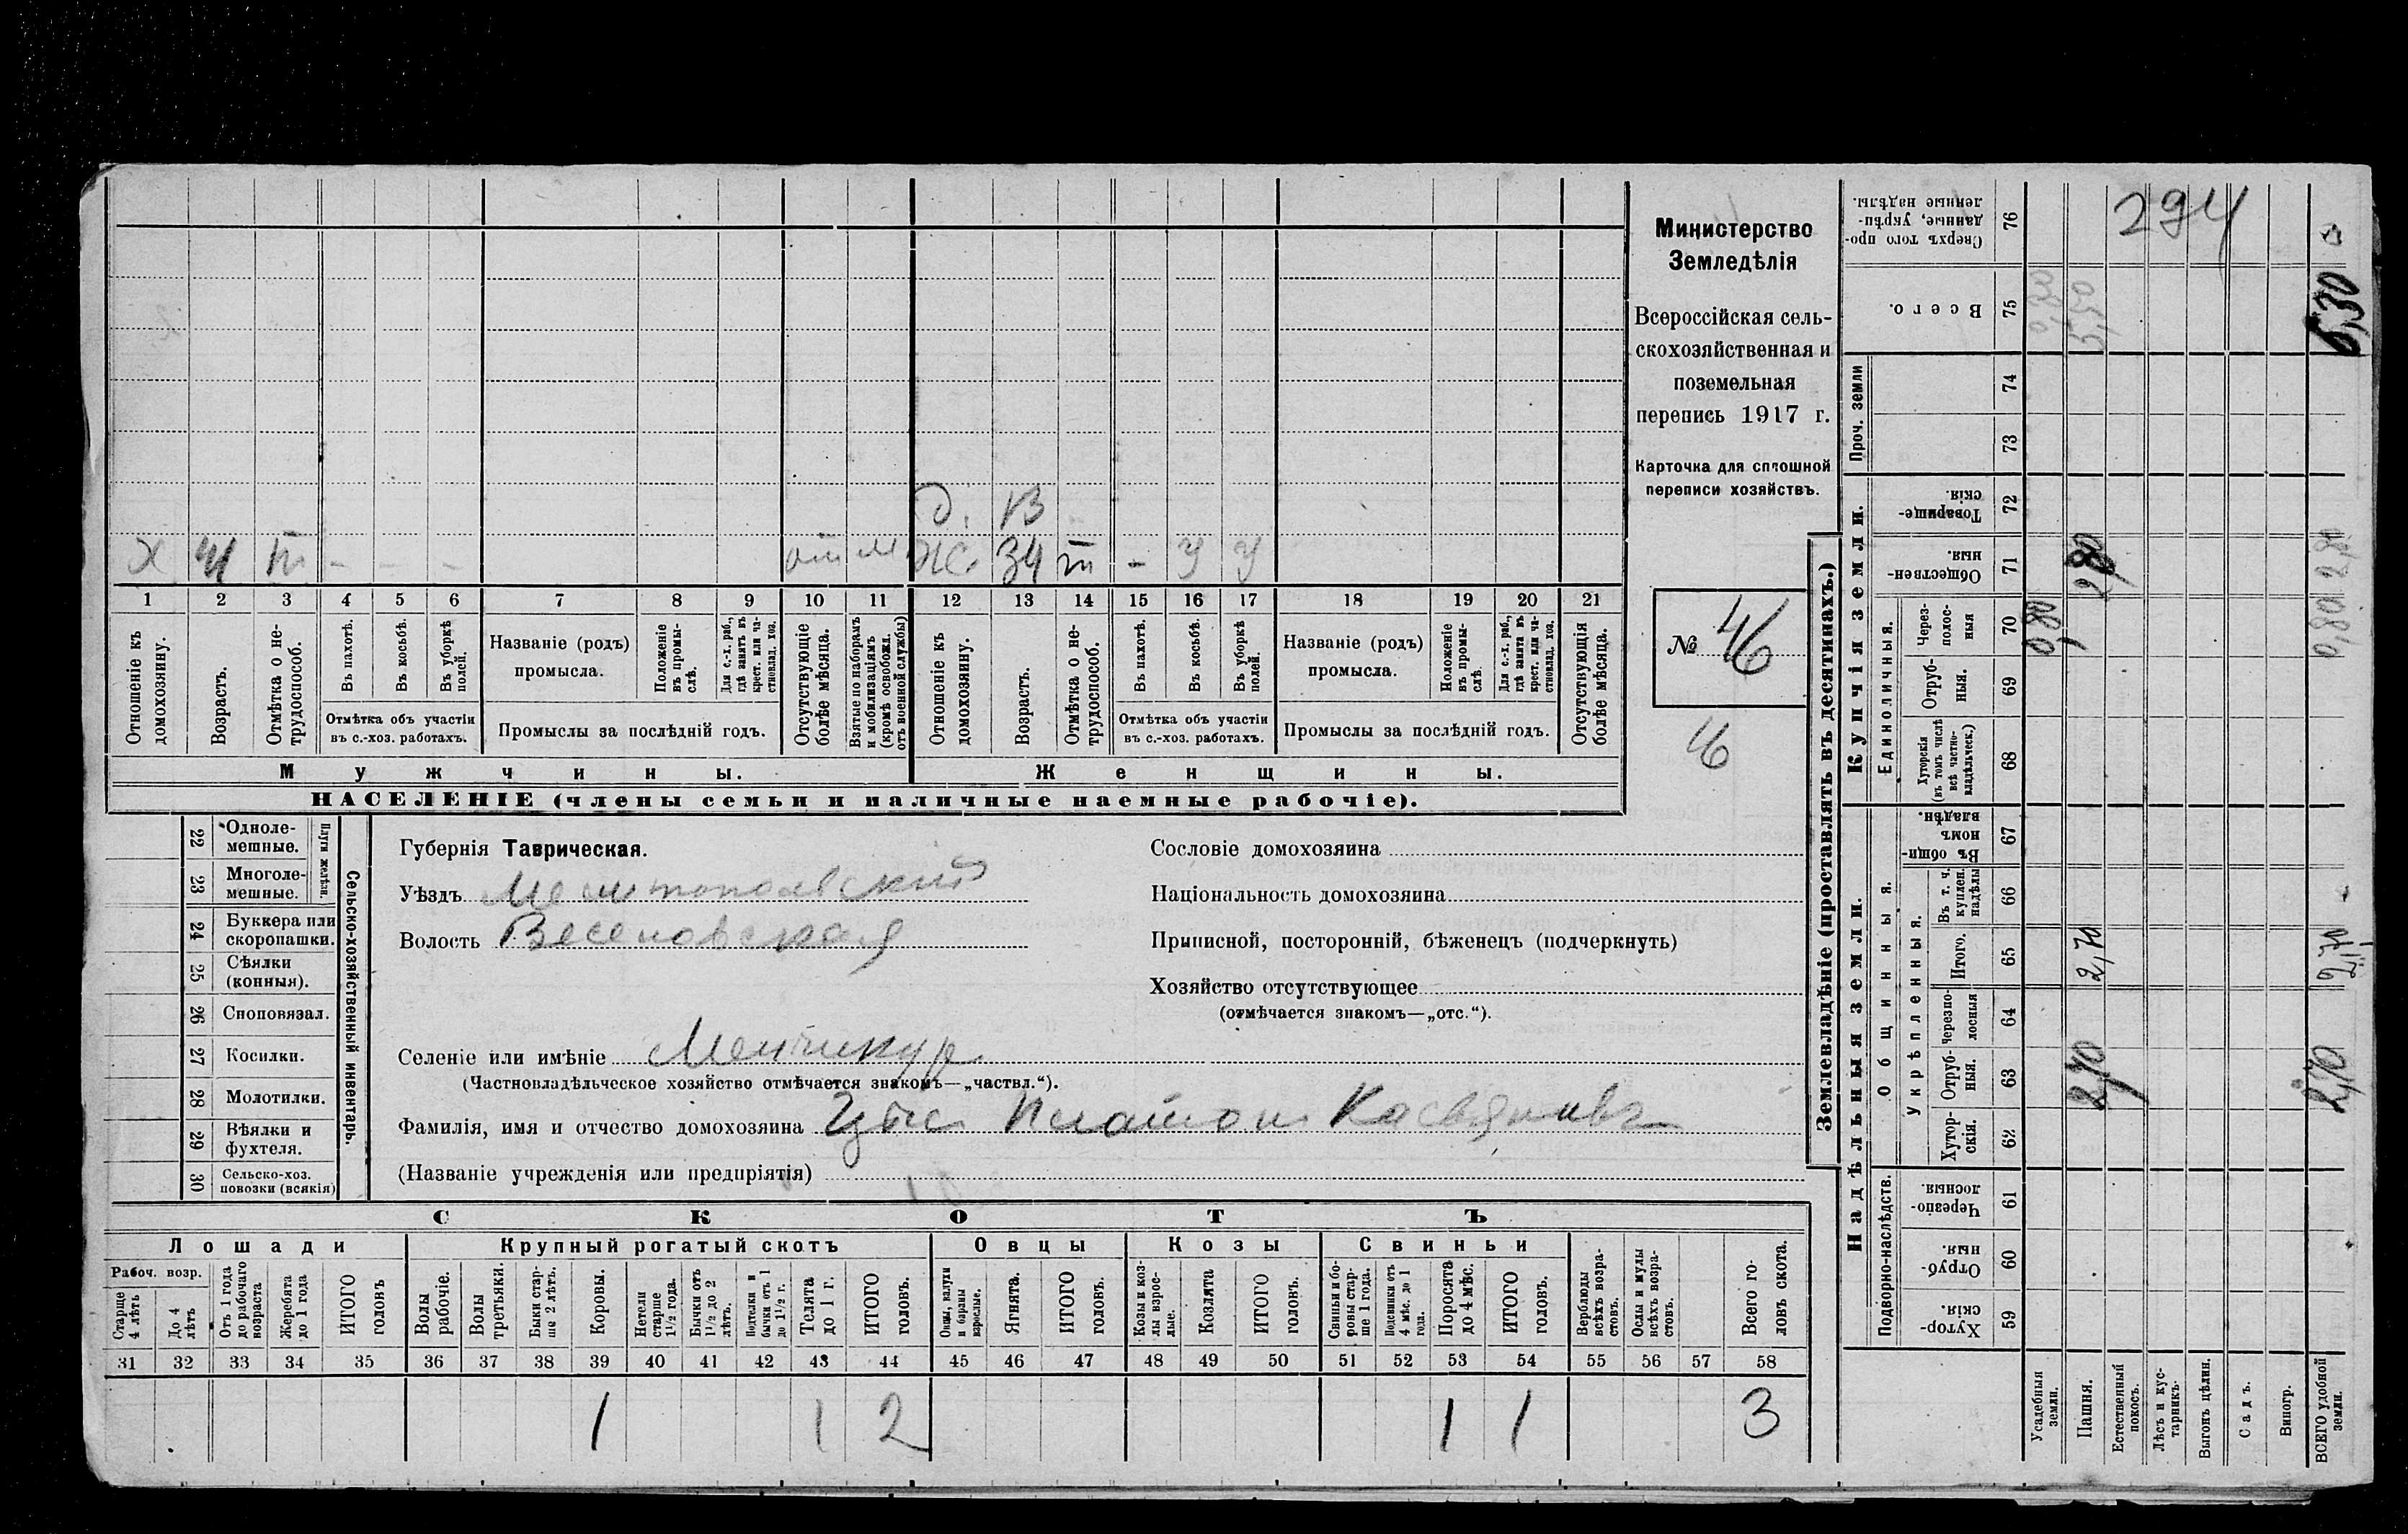 Министерство
Земледѣлія
Всероссійская сель-
скохозяйственная и
поземельная
перепись 1917 г.
Карточка для сплошной
переписи хозяйствъ.
№ 46
46
294
д. 13
х 41 т - - - от м ж. 34 т - у у
1 2 3 4 5 6 7 8 9 10 11 12 13 14 15 16 17 18 19 20 21
Отношеніе къ домохозяину.
Возрастъ.
Отмѣтка о не-трудоспособ.
Въ пахотѣ.
Въ косьбѣ.
Въ уборкѣ полей.
Отмѣтка объ участіи
въ с.-хоз. работахъ.
Названіе (родъ)
промысла.
Положеніе въ промы-слѣ.
Для с.-х. раб., гдѣ занятъ въ крест. или ча-стновлад. хоз.
Промыслы за послѣдній годъ.
Отсутствующіе болѣе мѣсяца.
Взятые по наборамъ и мобилизаціямъ (кромѣ освобожд. отъ военной службы)
Отношеніе къ домохозяину.
Возрастъ.
Отмѣтка о не-трудоспособ.
Въ пахотѣ.
Въ косьбѣ.
Въ уборкѣ полей.
Отмѣтка объ участіи
въ с.-хоз. работахъ.
Названіе (родъ)
промысла.
Положеніе въ промы-слѣ.
Для с.-х. раб., гдѣ занята въ крест. или ча-стновлад. хоз.
Промыслы за послѣдній годъ.
Отсутствующія болѣе мѣсяца.
Мужчины.
Женщины.
НАСЕЛЕНІЕ (члены семьи и наличные наемные рабочіе).
Сельско-хозяйственный инвентарь.
Плуги желѣзн.
22 Одноле-
мешные.
23 Многоле-
мешные.
24 Буккера или
скоропашки.
25 Сѣялки
(конныя).
26 Сноповязал.
27 Косилки.
28 Молотилки.
29 Вѣялки и
фухтеля.
30 Сельско-хоз.
повозки (всякія)
Губернія Таврическая.
Уѣздъ Мелитопольскій
Волость Веселовская
Селеніе или имѣніе Менчикур
(Частновладѣльческое хозяйство отмѣчается знакомъ—„частвл.“).
Фамилія, имя и отчество домохозяина Цыс Платон Касьяновъ
(Названіе учрежденія или предпріятія)
Сословіе домохозяина
Національность домохозяина
Приписной, посторонній, бѣженецъ (подчеркнуть)
Хозяйство отсутствующее
(отмѣчается знакомъ—„отс.“).
СКОТЪ
Лошади
Крупный рогатый скотъ
Овцы
Козы
Свиньи
Рабоч. возр.
Старше 4 лѣтъ
До 4 лѣтъ
Отъ 1 года до рабочаго возраста
Жеребята до 1 года
ИТОГО головъ
Волы рабочіе.
Волы третьяки.
Быки стар-ше 2 лѣтъ.
Коровы.
Нетели старше 1½ года.
Бычки отъ 1½ до 2 лѣтъ.
Подтелки и бычки отъ 1 до 1½ г.
Телята до 1 г.
ИТОГО головъ.
Овцы, валухи и бараны взрослые.
Ягнята.
ИТОГО головъ.
Козы и коз-лы взрос-лые.
Козлята
ИТОГО головъ.
Свиньи и бо-ровы стар-ше 1 года.
Подсвинки отъ 4 мѣс. до 1 года.
Поросята до 4 мѣс.
ИТОГО головъ.
Верблюды всѣхъ возра-стовъ.
Ослы и мулы всѣхъ возра-стовъ.
Всего го-ловъ скота.
31 32 33 34 35 36 37 38 39 40 41 42 43 44 45 46 47 48 49 50 51 52 53 54 55 56 57 58
1 1 2 1 1 3
Землевладѣніе (проставлять въ десятинахъ.)
Надѣльныя земли.
Купчія земли.
Проч. земли
Подворно-наслѣдств.
Общинныя.
Укрѣпленныя.
Единоличныя.
Сверхъ того про-данные, укрѣп-ленные надѣлы. 76
Всего. 75
74
73
Товарище-скія. 72
Обществен-ныя. 71
Через-полос-ныя 70
Отруб-ныя. 69
Хуторскія (въ томъ числѣ всѣ частно-владѣльческ.) 68
Въ общи-номъ владѣн. 67
Въ т. ч. куплен. надѣлы 66
Итого. 65
Черезпо-лосныя 64
Отруб-ныя. 63
Хутор-скія. 62
Черезпо-лосныя 61
Отруб-ныя. 60
Хутор-скія. 59
Усадебныя земли. 0,80 0,80
Пашня. 2,70 2,70 2,80 5,50
Естественный покосъ.
Лѣсъ и кус-тарникъ.
Выгонъ цѣлин.
Садъ.
Виногр.
ВСЕГО удобной земли. 2,70 2,70 0,80 2,80 6,30